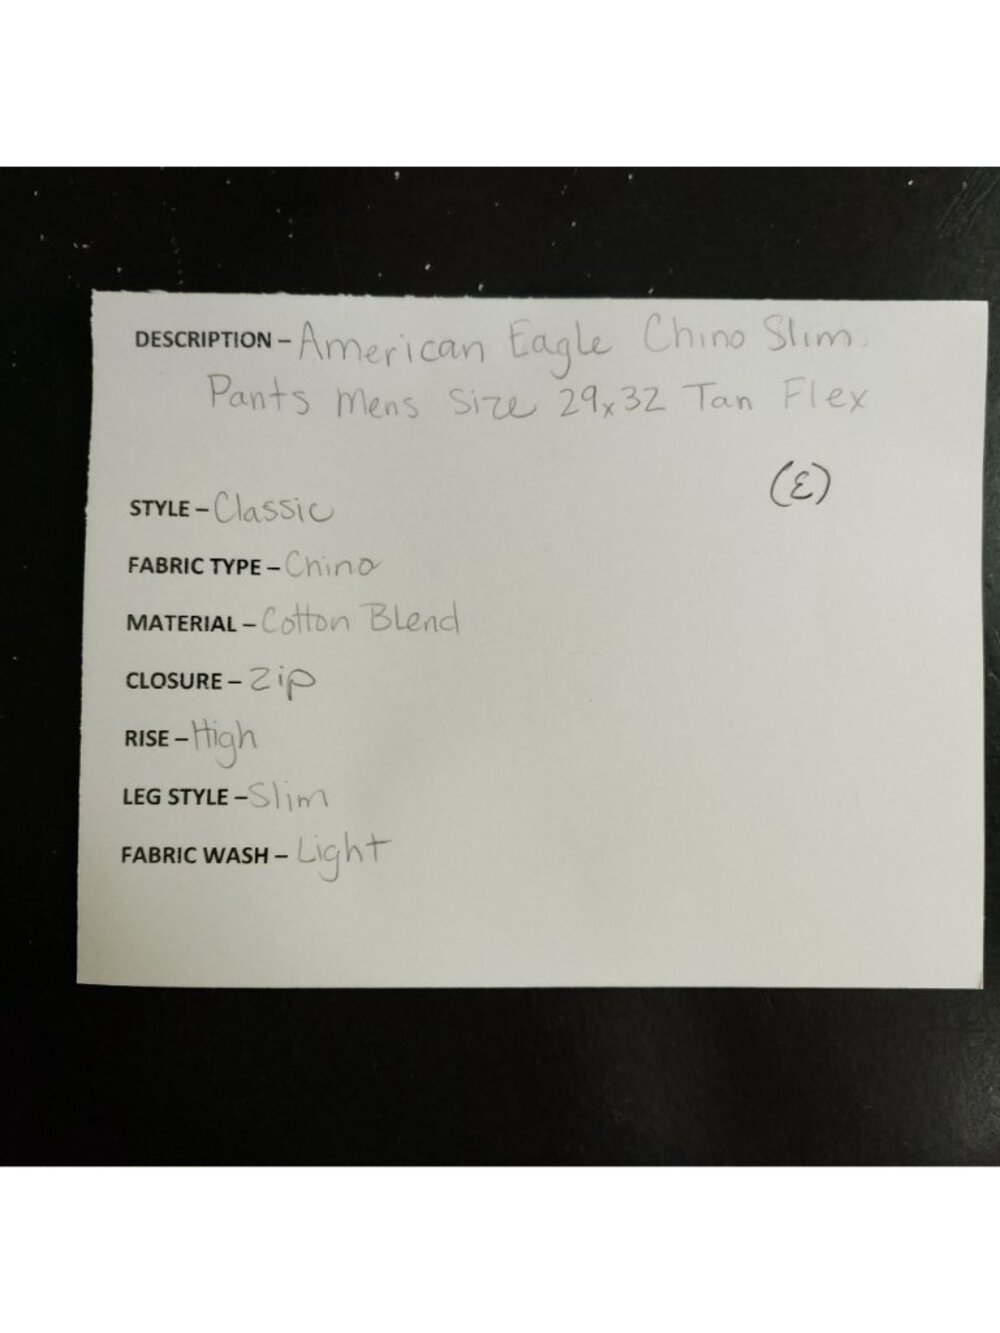 DESCRIPTION – American Eagle Chino Slim
Pants Mens Size 29x32 Tan Flex
(E)
STYLE – Classic
FABRIC TYPE – Chino
MATERIAL – Cotton Blend
CLOSURE – Zip
RISE – High
LEG STYLE – Slim
FABRIC WASH – Light